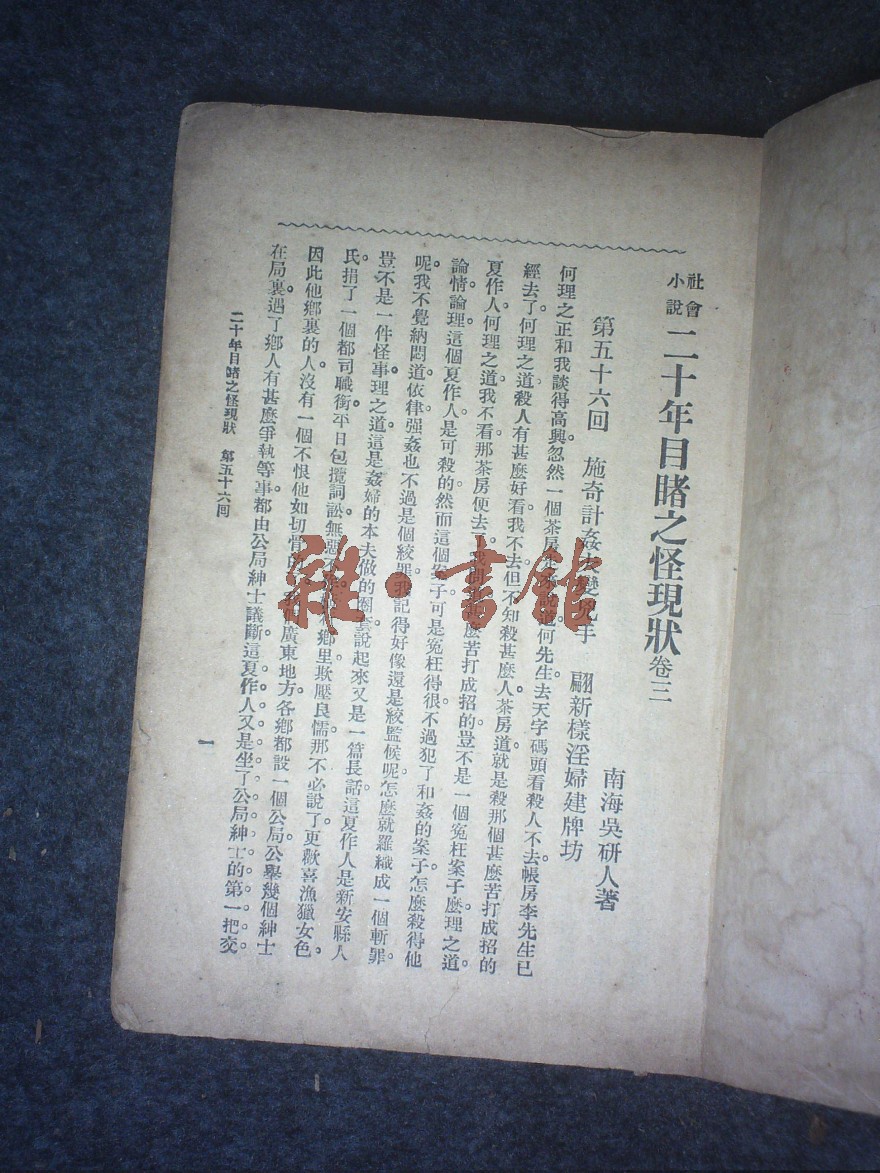 社會小說 二十年目睹之怪現狀 卷三
南海吳研人著
第五十六回 施奇計姦夫變兇手 翩新樣淫婦建牌坊
何理之正和我談得高興。忽然一個茶房 道何先生去天字碼頭看殺人不去帳房李先生已
經去了。何理之道殺人有甚麼好看我不去但不知殺甚麼人茶房道就是殺那個甚麼苦打成招的
夏作人何理之道我不看那茶房便去 我問 麼苦打成招的豈不是一個冤枉案子麼理之道
論情論理這個夏作人是可殺的然而這個案子可是冤枉得很不過犯了和姦的案子怎麼殺得他
呢。我不覺納悶道依律强姦也不過是個絞罪我記得好像還是絞監候呢怎麼就羅織成一個斬罪
豈不是一件怪事理之道這是姦婦的本夫做的圈套說起來又是一篇長話這夏作人是新安縣人
氏捐了一個都司職銜平日包攬詞訟無惡不 鄉里欺壓良懦那不必說了更歡喜漁獵女色。
因此他鄉裏的人沒有一個不恨他如切骨的 廣東地方各鄉都設一個公局公舉幾個紳士
在局裏遇了鄉人有甚麼爭執等事都由公局紳士議斷這夏作人又是坐了公局紳士的第一把交
二十年目睹之怪現狀 第五十六回
一
雜·書館